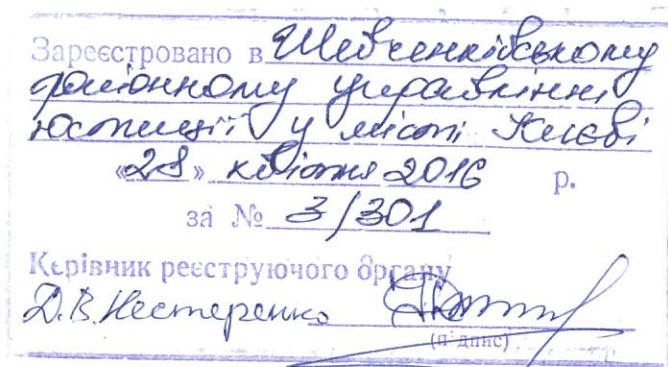 Зареєстровано в Шевченківському
районному управлінні
юстиції у місті Києві
«28» квітня 2016 р.
за № 3/301
Керівник реєструючого органу
Д.В. Нестеренко
(підпис)